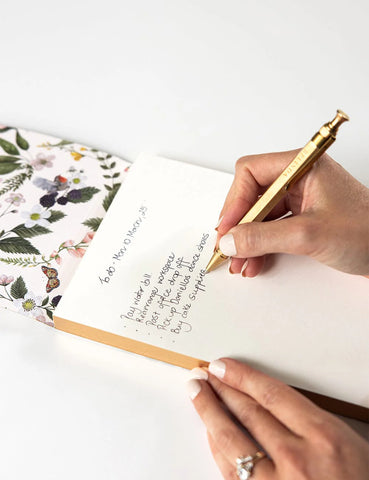 To do - Mon 10 March, 25
· Pay water bill
· Rearrange workspace
· Post office drop off
· Pick up Daniella's dance shoes
· Buy cake supplies